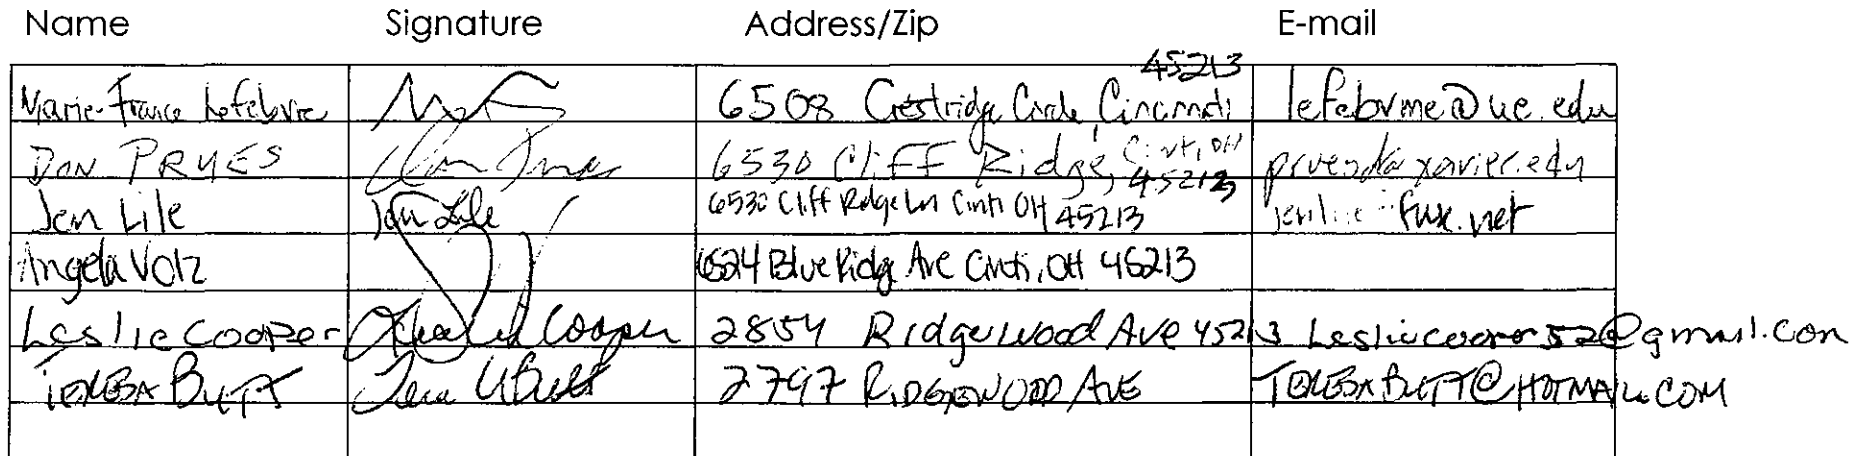 Name Signature Address/Zip E-mail
45213
Marie-France Lefebvre 6508 Crestridge Circle, Cincinnati lefebvme@uc.edu
DON PRUES 6530 Cliff Ridge, Cinti, OH 45213 xavier.edu
Jen Lile Jen Lile 6530 Cliff Ridge Ln Cinti OH 45213 fuse.net
Angela Volz 6524 Blue Ridge Ave Cinti, OH 45213
Leslie Cooper Leslie Cooper 2854 Ridgewood Ave 45213 Lesliecooper52@gmail.com
TERESA BUTT 2797 RIDGEWOOD AVE TERESABUTT@HOTMAIL.COM